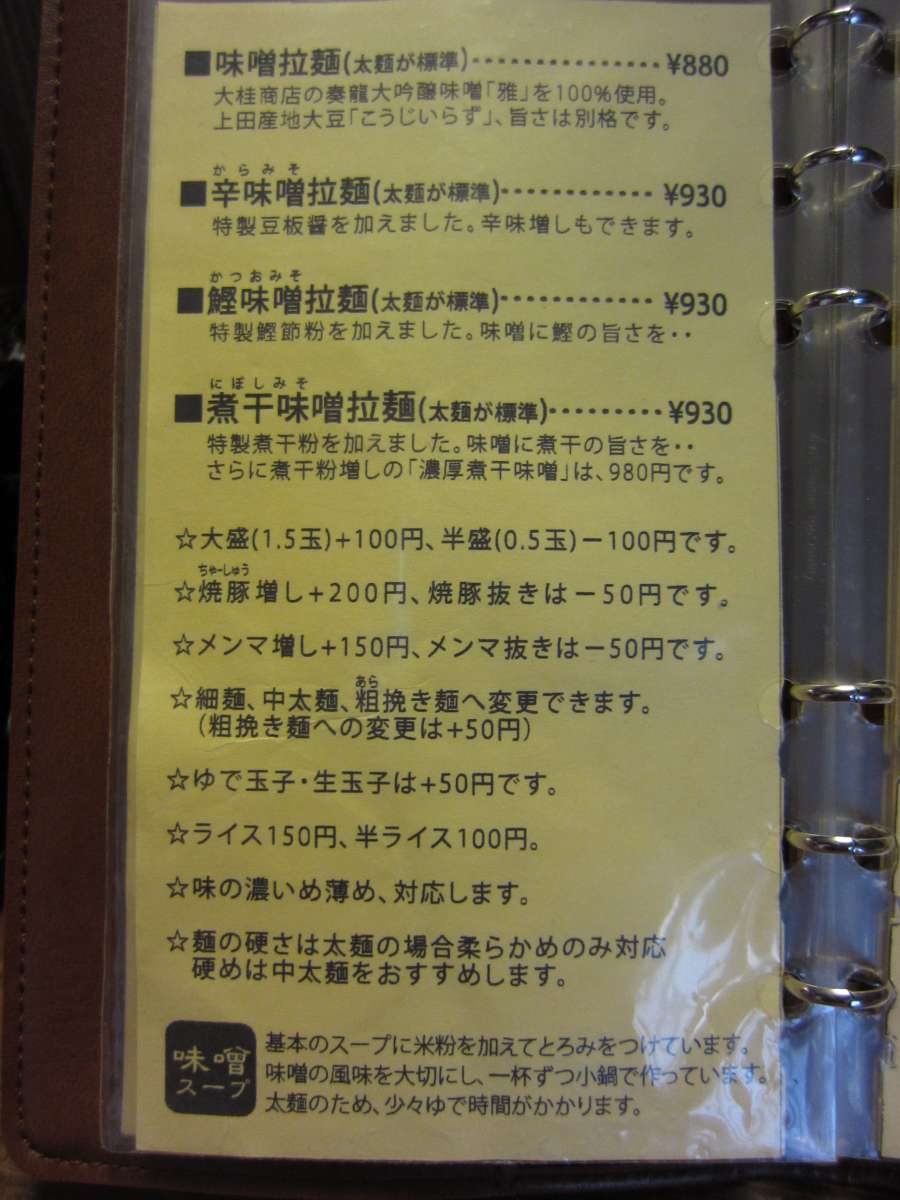 ■味噌拉麺(太麺が標準)················¥880
大桂商店の奏龍大吟醸味噌「雅」を100%使用。
上田産地大豆「こうじいらず」、旨さは別格です。
からみそ
■辛味噌拉麺(太麺が標準)·············¥930
特製豆板醤を加えました。辛味増しもできます。
かつおみそ
■鰹味噌拉麺(太麺が標準)·············¥930
特製鰹節粉を加えました。味噌に鰹の旨さを··
にぼしみそ
■煮干味噌拉麺(太麺が標準)·········¥930
特製煮干粉を加えました。味噌に煮干の旨さを··
さらに煮干粉増しの「濃厚煮干味噌」は、980円です。
☆大盛(1.5玉)+100円、半盛(0.5玉)−100円です。
ちゃーしゅう
☆焼豚増し+200円、焼豚抜きは−50円です。
☆メンマ増し+150円、メンマ抜きは−50円です。
あら
☆細麺、中太麺、粗挽き麺へ変更できます。
(粗挽き麺への変更は+50円)
☆ゆで玉子・生玉子は+50円です。
☆ライス150円、半ライス100円。
☆味の濃いめ薄め、対応します。
☆麺の硬さは太麺の場合柔らかめのみ対応
硬めは中太麺をおすすめします。
味噌
スープ
基本のスープに米粉を加えてとろみをつけています。
味噌の風味を大切にし、一杯ずつ小鍋で作っています。
太麺のため、少々ゆで時間がかかります。